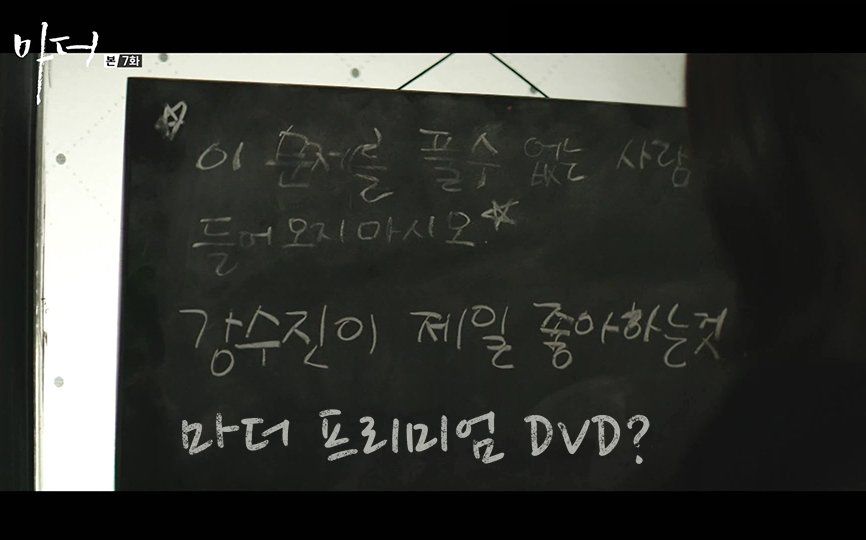 마더
본 7화
이 문제를 풀수 없는 사람
들어오지마시오
강수진이 제일 좋아하는것
마더 프리미엄 DVD?